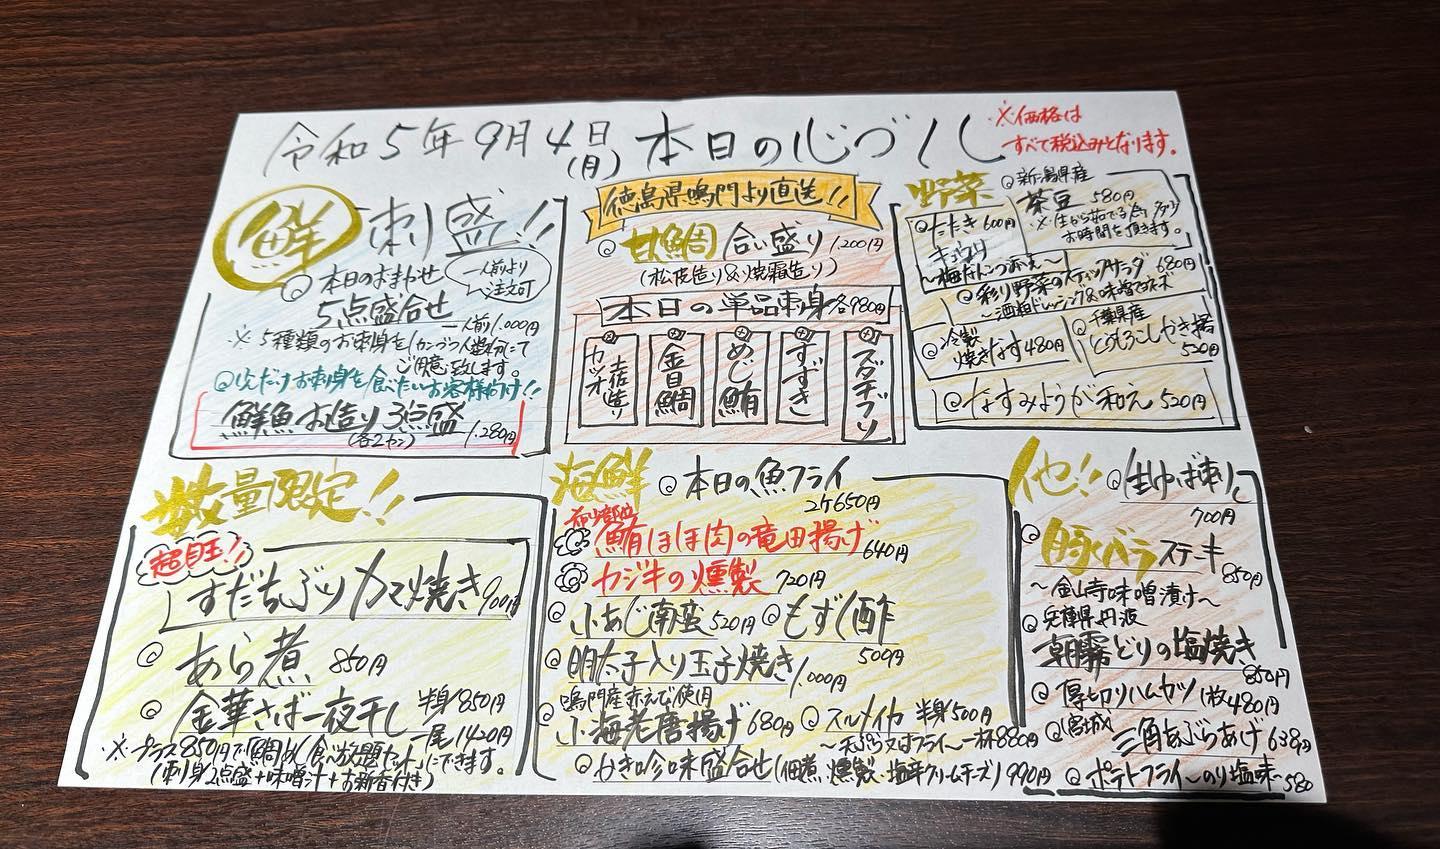 令和5年9月4日(月) 本日の心づくし
※価格は
すべて税込みとなります。
鮮 刺盛!!
本日のおまかせ
5点盛合せ
一人前より
ご注文可
一人前1,000円
※5種類のお刺身を1カンづつ人数分にて
ご用意致します。
お刺身を食べたいお客様向け!!
鮮魚お造り3点盛
(各2カン)
1,280円
徳島県鳴門より直送!!
甘鯛 合い盛り 1,200円
(松皮造り&焼霜造り)
本日の単品刺身 各980円
カツオ
土佐造り
金目鯛
めじ鮪
すずき
スダチブリ
野菜
新潟県産
茶豆 580円
※生から茹でる為
お時間を頂きます。
たたき 600円
キュウリ
彩り野菜のスティックサラダ 680円
~酒粕ドレッシング&味噌マヨネーズ
冷製
焼きなす 480円
千葉県産
とうもろこしかき揚
520円
なすみょうが和え 520円
数量限定!!
超目玉!!
すだちぶりカマ焼き 900円
あら煮 850円
金華さば一夜干し 半身850円
一尾1420円
※プラス850円で鯛めし食べ放題セットにできます。
(刺身2点盛+味噌汁+お新香付き)
海鮮
本日の魚フライ
2ケ650円
希少部位
鮪ほほ肉の竜田揚げ 640円
カジキの燻製 720円
小あじ南蛮 520円
もずく酢
500円
明太子入り玉子焼き 1,000円
鳴門産赤えび使用
小海老唐揚げ 680円
スルメイカ 半身500円
~天ぷら又はフライ~一杯880円
かき珍味盛合せ(佃煮、燻製、塩辛クリームチーズ) 990円
他!!
生ゆば刺し
700円
豚バラステーキ
850円
~金山寺味噌漬け~
兵庫県丹波
朝霧どりの塩焼き
850円
厚切りハムカツ 1枚480円
宮城
三角あぶらあげ 638円
ポテトフライ~のり塩味~580